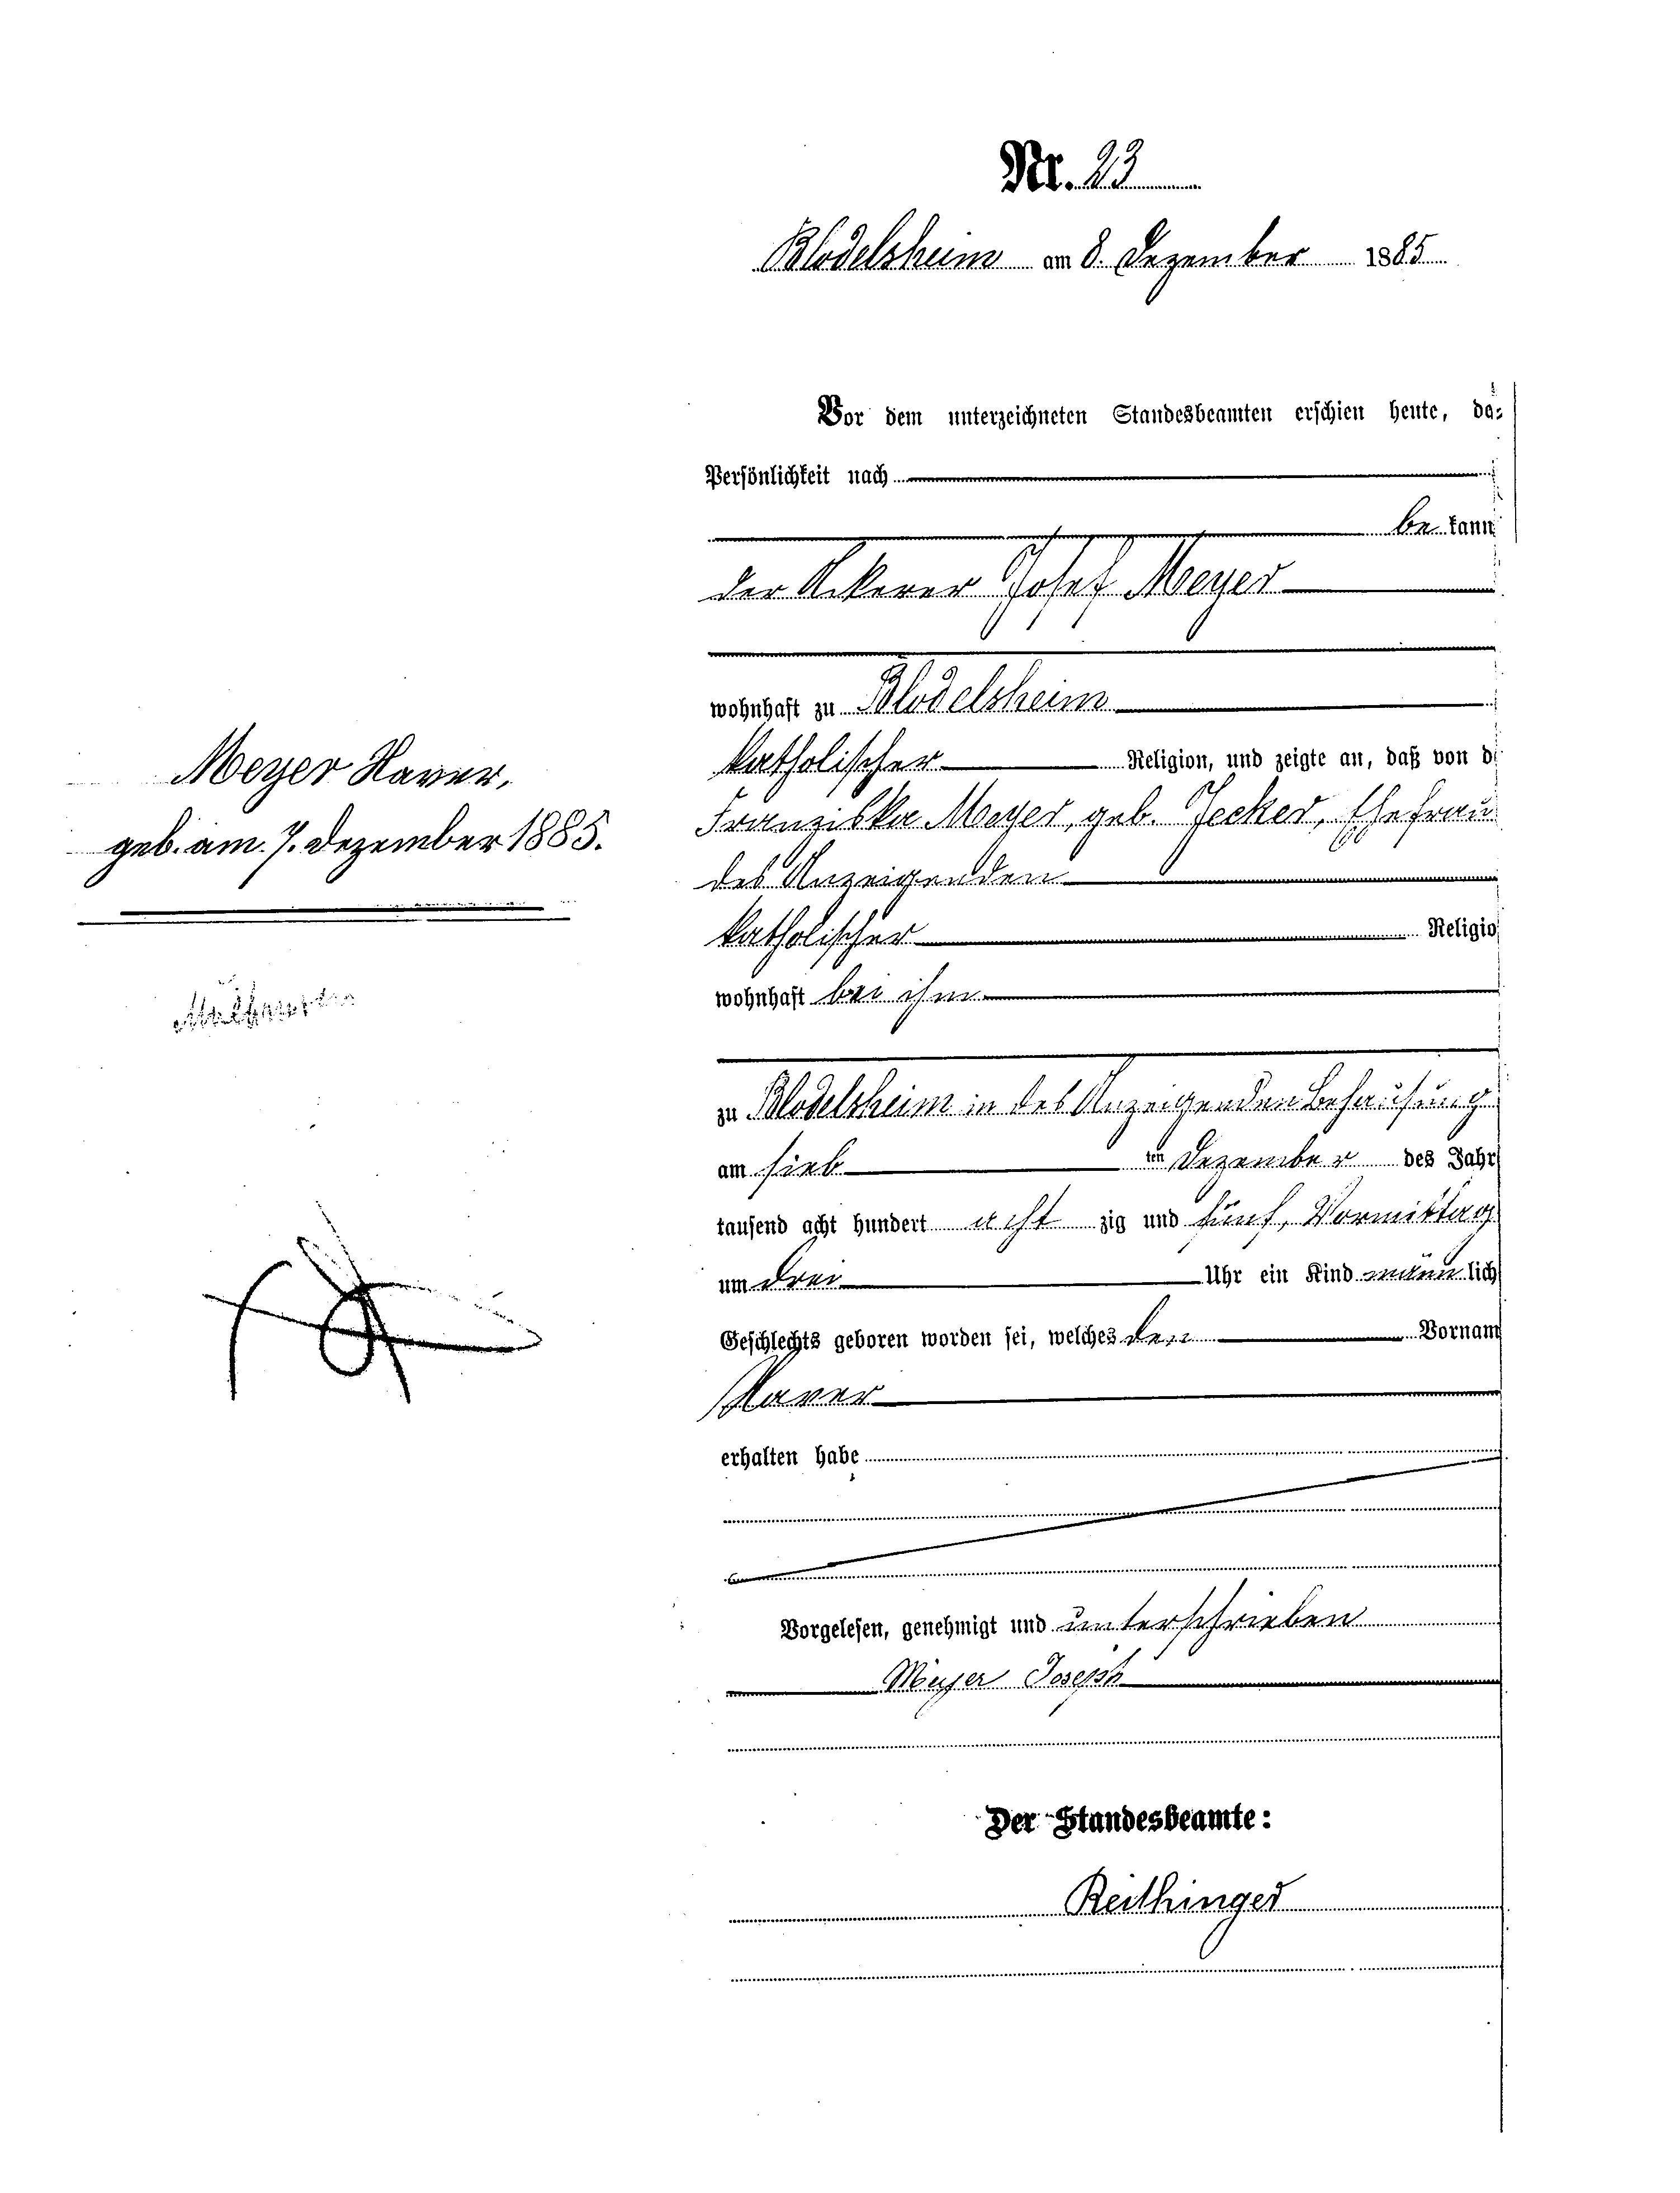 Nr. 23
Blodelsheim am 8. Dezember 1885
Vor dem unterzeichneten Standesbeamten erschien heute, de
Persönlichkeit nach
be kann
der Ackerer Josef Meyer
wohnhaft zu Blodelsheim
katholischer Religion, und zeigte an, daß von d
Franziska Meyer, geb. Jecker, Ehefrau
des Anzeigenden
katholischer Religio
wohnhaft bei ihm
zu Blodelsheim in des Anzeigenden Behausung
am sieb ten Dezember des Jahr
tausend acht hundert acht zig und fünf, Vormittag
um drei Uhr ein Kind männ lich
Geschlechts geboren worden sei, welches den Vornam
Xaver
erhalten habe
Vorgelesen, genehmigt und unterschrieben
Meyer Joseph
Der Standesbeamte:
Reithinger
Meyer Xaver,
geb. am 7. Dezember 1885.